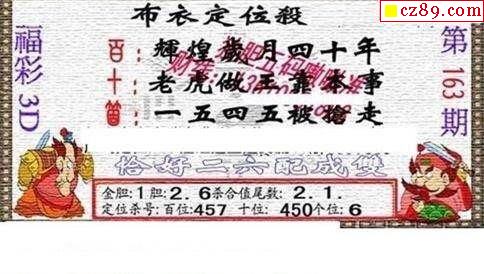 cz89.com
布衣定位殺
福彩3D
第163期
百:輝煌歲月四十年
十:老虎做王靠本事
箇:一五四五被搶走
恰好二六配成雙
金胆:1胆:2.6杀合值尾数:2.1.
定位杀号:百位:457 十位:450个位:6